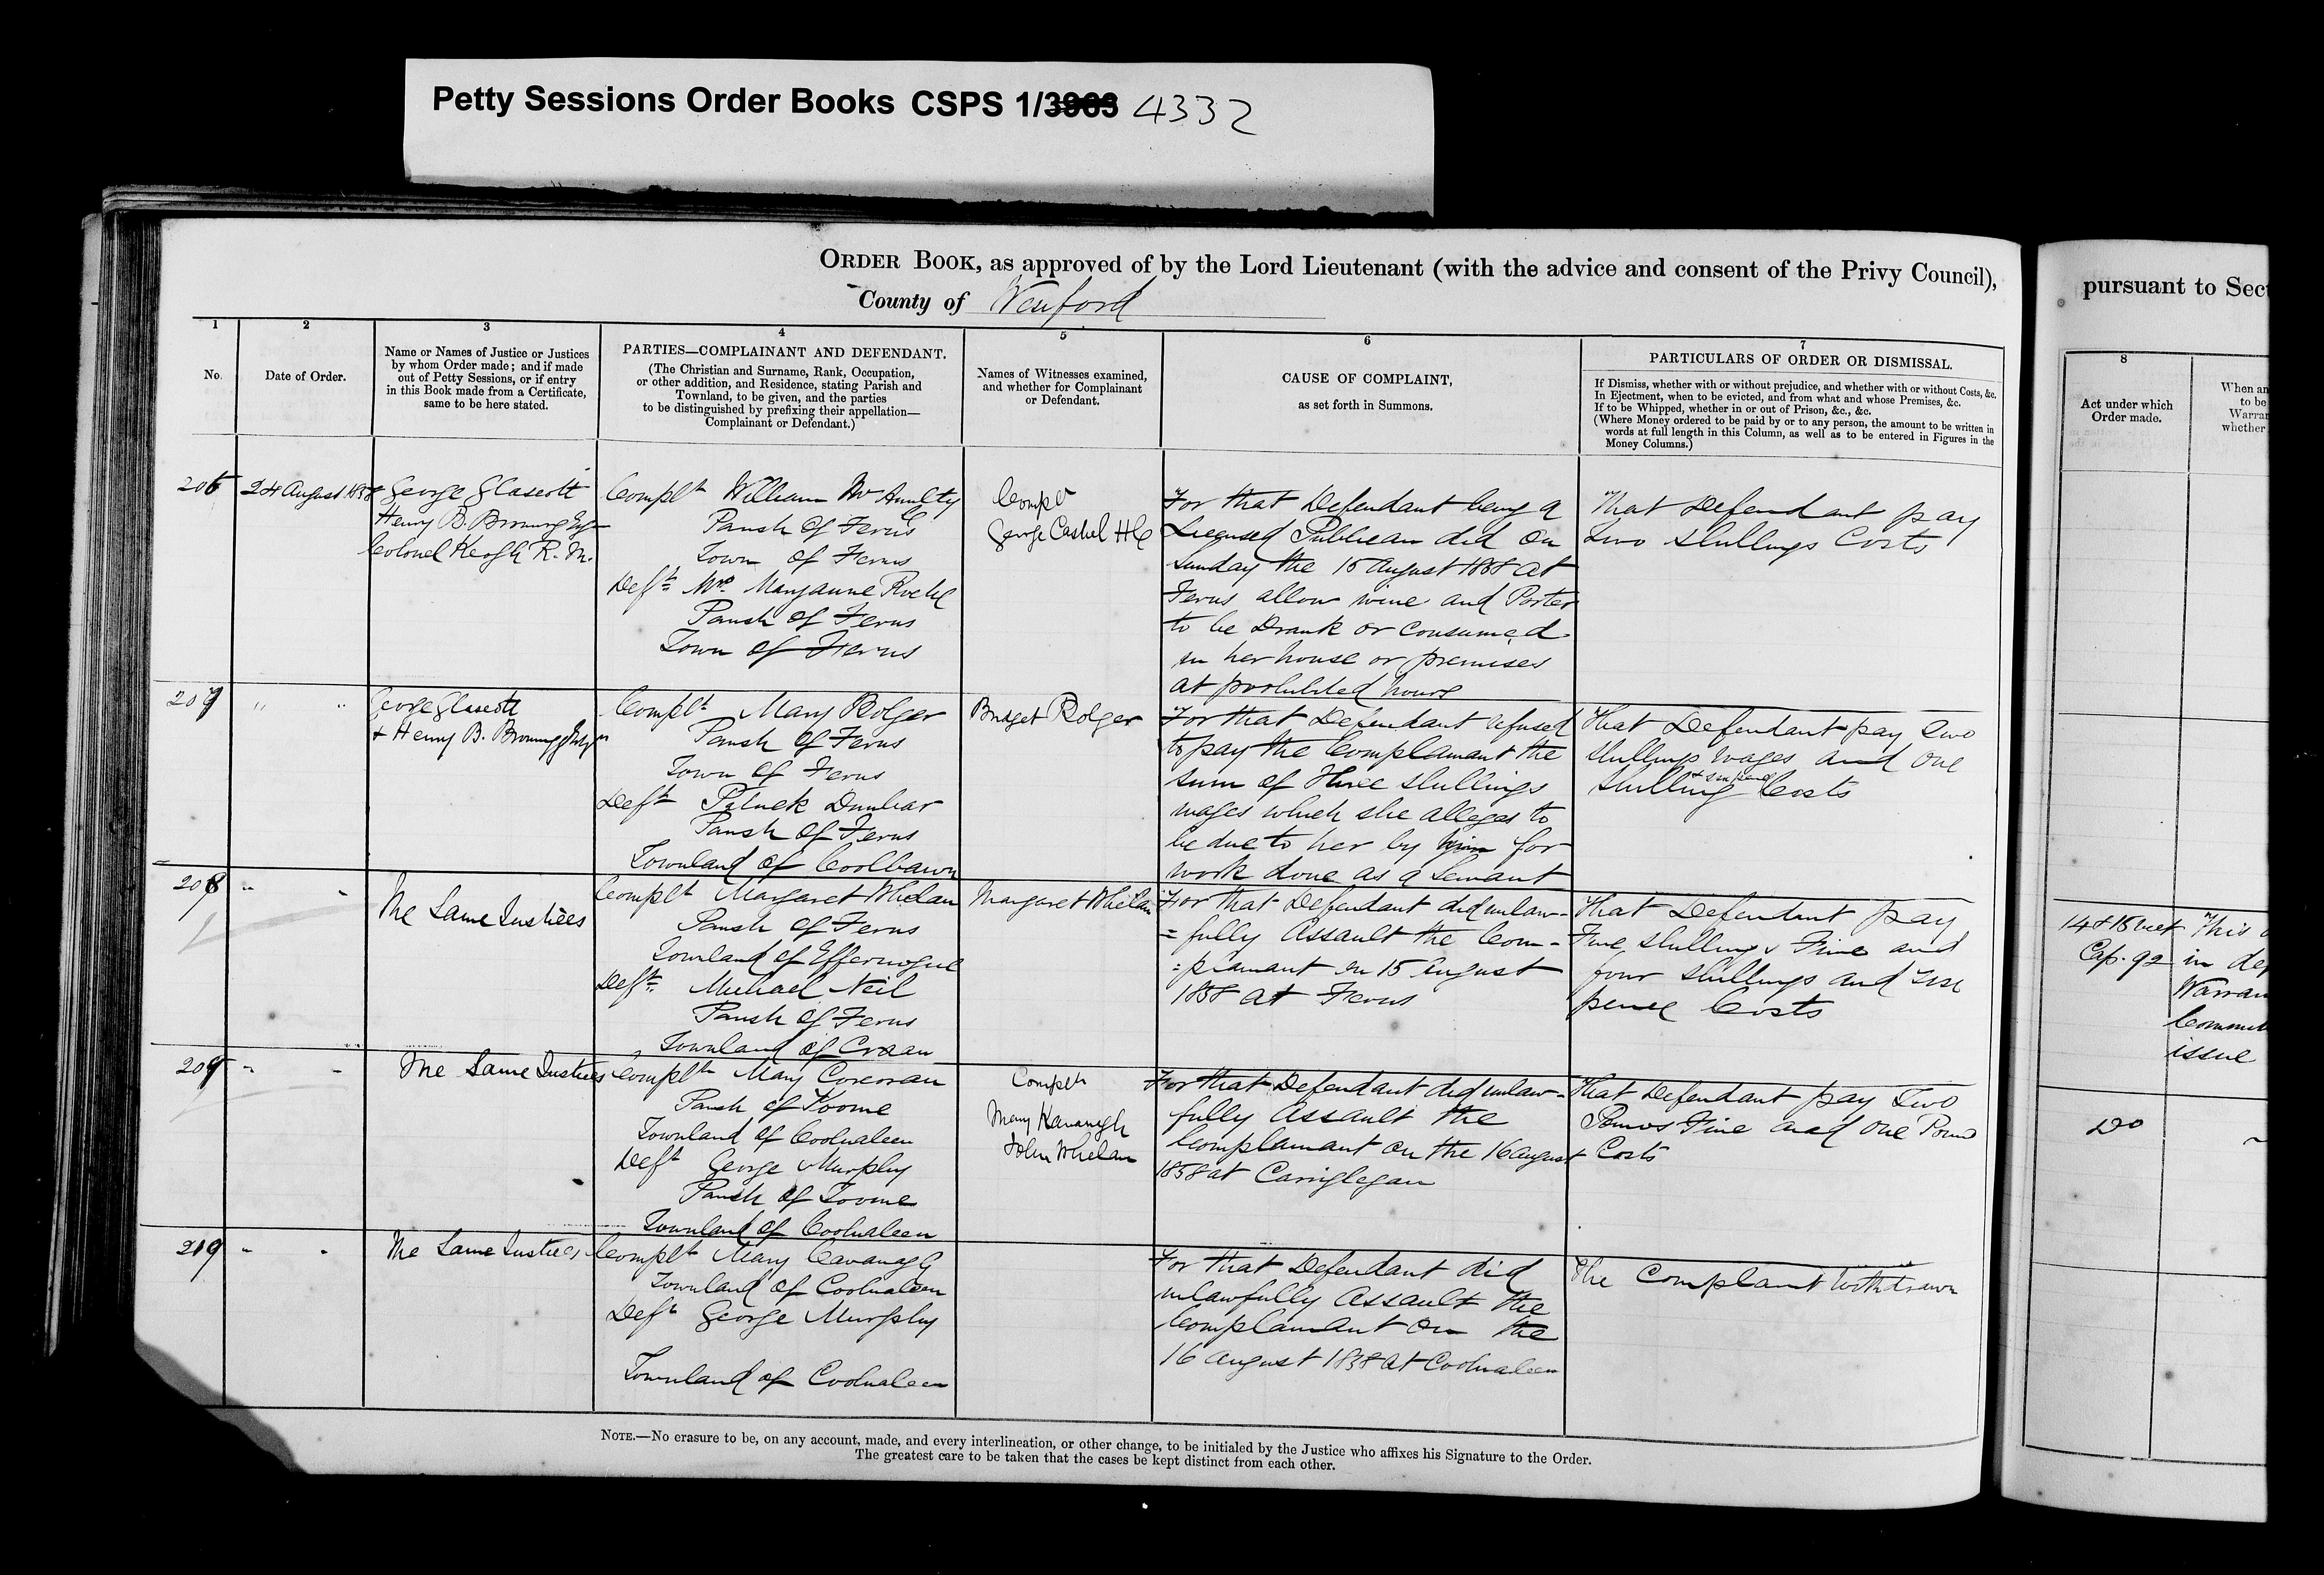 Petty Sessions Order Books CSPS 1/3963 4332
ORDER BOOK, as approved of by the Lord Lieutenant (with the advice and consent of the Privy Council),
County of Wexford
pursuant to Sect
1
2
3
4
5
6
7
8
No.
Date of Order.
Name or Names of Justice or Justices
by whom Order made; and if made
out of Petty Sessions, or if entry
in this Book made from a Certificate,
same to be here stated.
PARTIES—COMPLAINANT AND DEFENDANT.
(The Christian and Surname, Rank, Occupation,
or other addition, and Residence, stating Parish and
Townland, to be given, and the parties
to be distinguished by prefixing their appellation—
Complainant or Defendant.)
Names of Witnesses examined,
and whether for Complainant
or Defendant.
CAUSE OF COMPLAINT,
as set forth in Summons.
PARTICULARS OF ORDER OR DISMISSAL.
If Dismiss, whether with or without prejudice, and whether with or without Costs, &c.
In Ejectment, when to be evicted, and from what and whose Premises, &c.
If to be Whipped, whether in or out of Prison, &c., &c.
(Where Money ordered to be paid by or to any person, the amount to be written in
words at full length in this Column, as well as to be entered in Figures in the
Money Columns.)
Act under which
Order made.
When an
to be
Warran
whether
206
24 August 1858
George Glascott
Henry B. Browngg Esqr
Colonel Keogh R. M.
Complt William McAnulty
Parish of Ferns
Town of Ferns
Deft Mrs. Maryanne Roche
Parish of Ferns
Town of Ferns
Complt
George Cashel HC
For that Defendant being a
Licensed Publican did on
Sunday the 15 August 1858 at
Ferns allow wine and Porter
to be Drank or consumed
in her house or premises
at prohibited hours
That Defendant pay
Two Shillings Costs
207
" "
George Glascott
+ Henry B. Browngg Esqrs
Complt Mary Bolger
Parish of Ferns
Town of Ferns
Deft Patrick Dunbar
Parish of Ferns
Townland of Coolbawn
Bridget Bolger
For that Defendant refused
to pay the Complainant the
sum of Three Shillings
wages which she alleges to
be due to her by him for
work done as a Servant
That Defendant pay Two
Shillings wages and One
Shilling + six pence Costs
208
" "
The Same Justices
Complt Margaret Whelan
Parish of Ferns
Townland of Effernogue
Deft. Michael Neil
Parish of Ferns
Townland of Craan
Margaret Whelan
For that Defendant did unlaw-
=fully Assault the Com-
=plainant on 15 August
1858 at Ferns
That Defendant pay
Five Shillings Fine and
four Shillings and six
pence Costs
14 & 15 Vict
Cap. 92
This
in de
Warran
Commit
issue
209
" "
The Same Justices
Complt Mary Corcoran
Parish of Toome
Townland of Coolnaleen
Deft George Murphy
Parish of Toome
Townland of Coolnaleen
Complt
Mary Kavanagh
John Whelan
For that Defendant did unlaw-
fully Assault the
Complainant on the 16 August
1858 at Carriglegan
That Defendant pay Two
Pounds Fine and One Pound
Costs
Do
210
" "
The Same Justices
Complt Mary Cavanagh
Townland of Coolnaleen
Deft George Murphy
Townland of Coolnaleen
For that Defendant did
unlawfully Assault the
Complainant on the
16 August 1858 at Coolnaleen
The Complaint Withdrawn
NOTE.—No erasure to be, on any account, made, and every interlineation, or other change, to be initialed by the Justice who affixes his Signature to the Order.
The greatest care to be taken that the cases be kept distinct from each other.